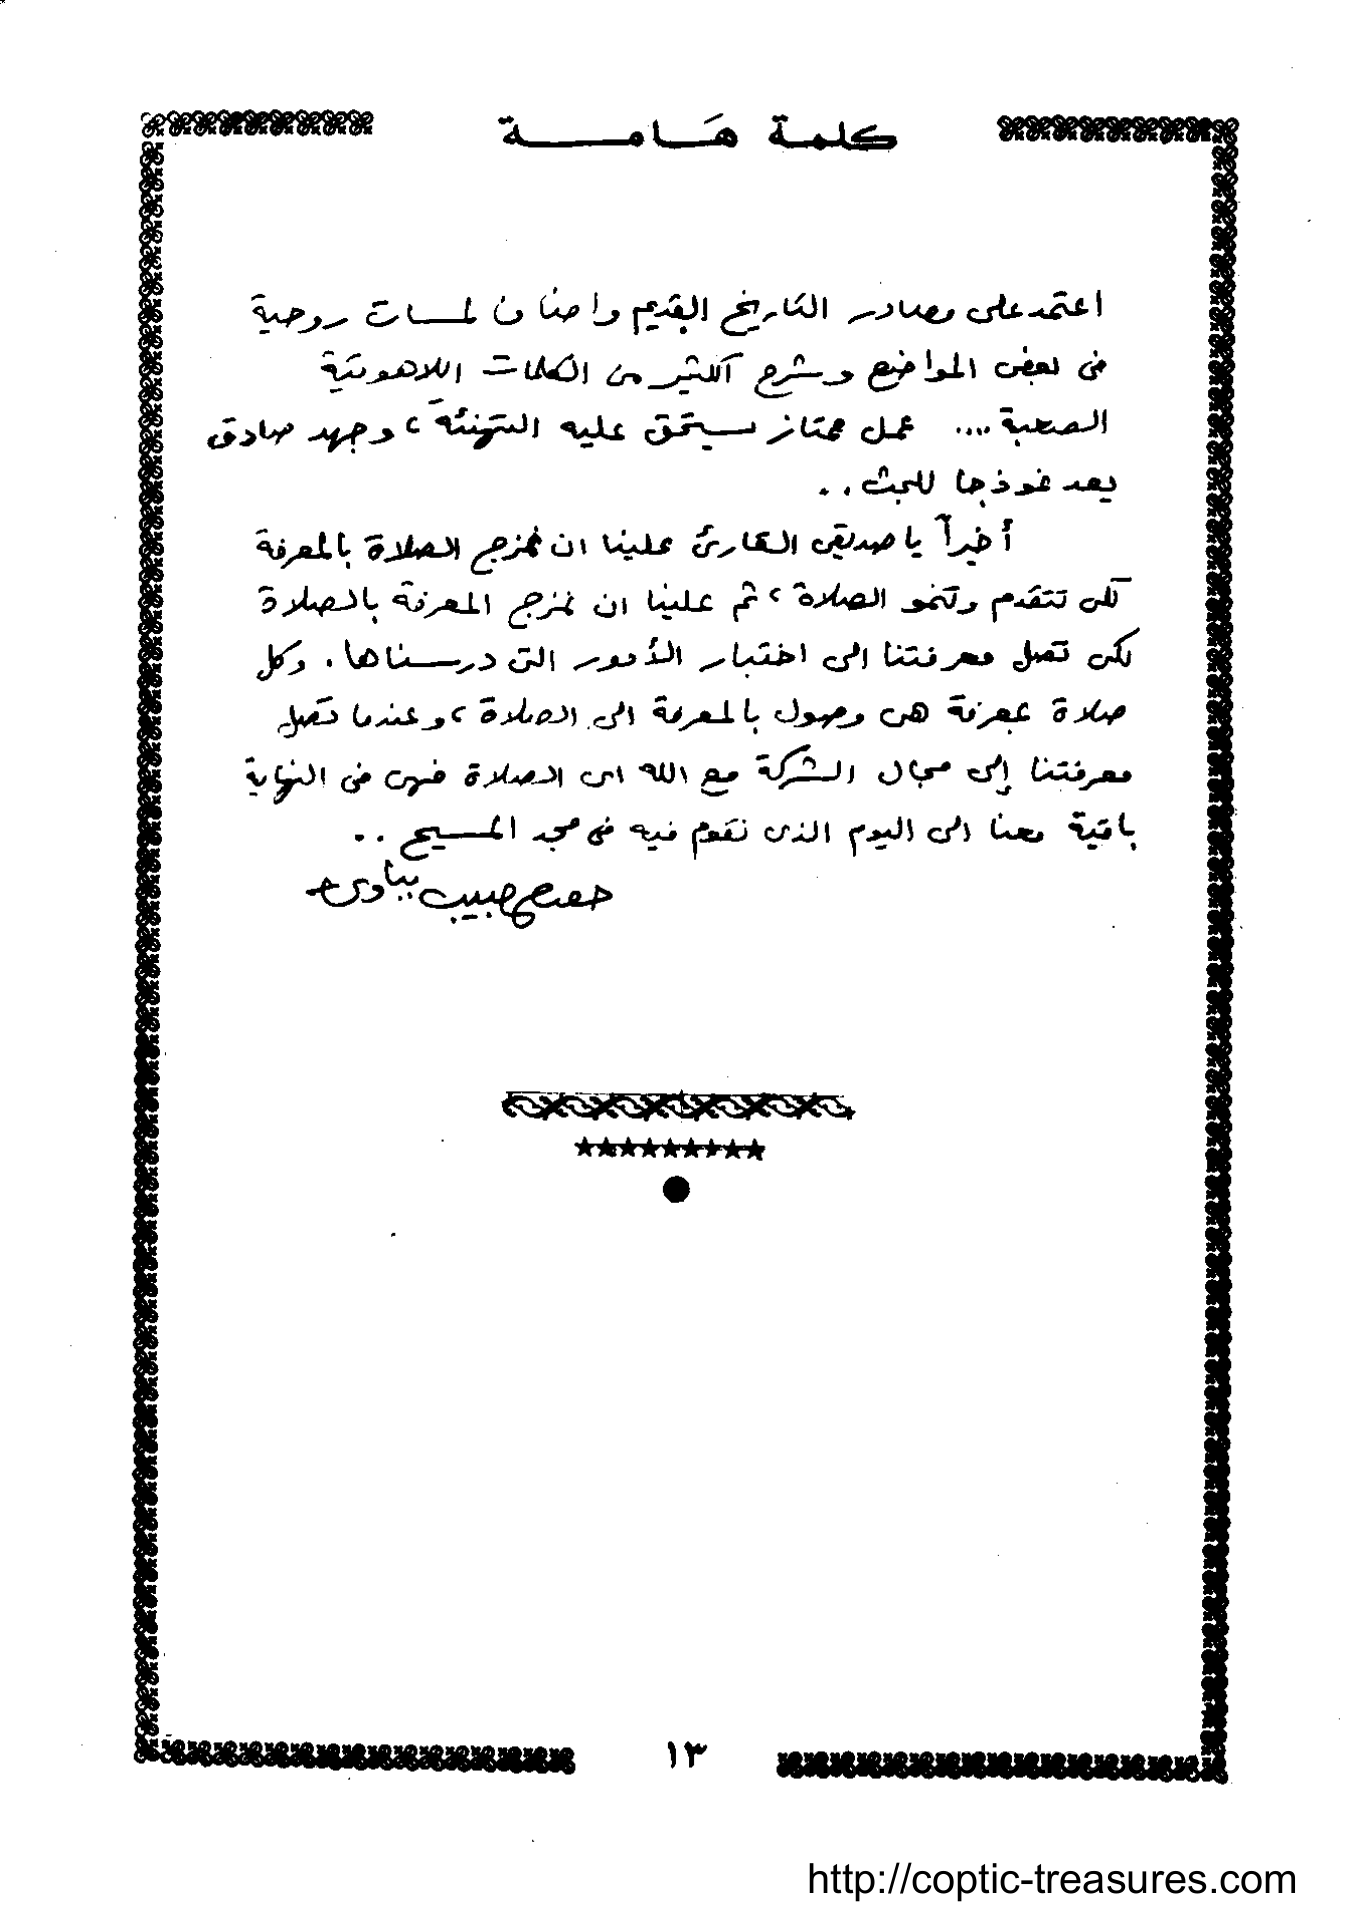 كلمة هَامة
اعتمد على مصادر التاريخ القديم واضاف لمسات روحية
فى بعض المواضع وشرح الكثير من الكلمات اللاهوتية
الصعبة .... عمل ممتاز يستحق عليه التهنئة ، وجهد صادق
يعد نموذجا للبحث ..
أخيراً يا صديقى القارئ علينا ان نمزج الصلاة بالمعرفة
لكى تتقدم وتنمو الصلاة ، ثم علينا ان نمزج المعرفة بالصلاة
لكى تصل معرفتنا الى اختبار الأمور التى درسناها . وكل
صلاة بمعرفة هى وصول بالمعرفة الى الصلاة ، وعندما تصل
معرفتنا إلى مجال الشركة مع الله اى الصلاة فهى فى النهاية
باقية معنا الى اليوم الذى نقوم فيه فى مجد المسيح ..
حبيب بباوى
١٣
http://coptic-treasures.com